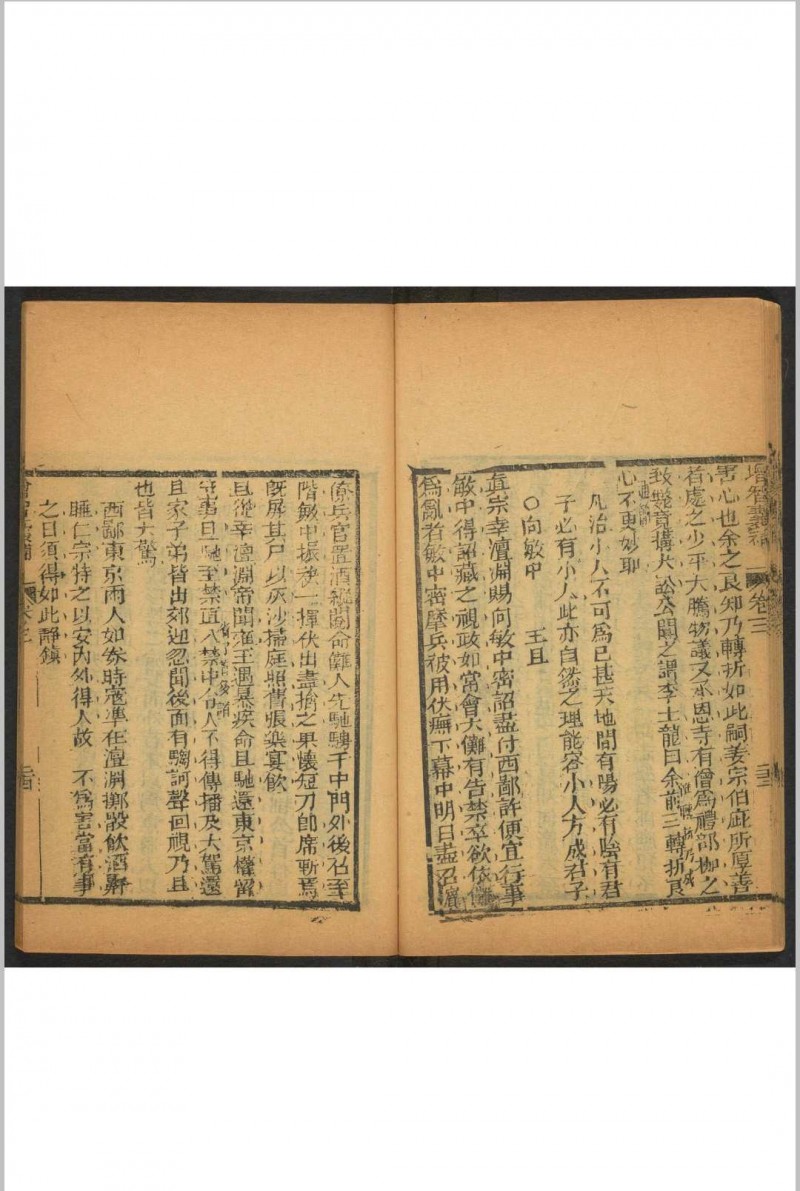 增智囊補 卷三 三
害心也余之良知乃轉折如此嗣姜宗伯庇所厚善
者處之少平大騰物議又承恩寺有僧爲禮部枷之
致斃竟搆大訟公聞之謂李士龍曰余前三轉折良
心不更妙耶
凡治小人不可爲已甚天地間有陽必有陰有君
子必有小人此亦自然之理能容小人方成君子
○向敏中 王旦
眞宗幸澶淵賜向敏中密詔盡付西鄙許便宜行事
敏中得詔藏之視政如常會大儺有告禁卒欲依儺
爲亂者敏中密麾兵被甲伏廡下幕中明日盡召賓
僚兵官置酒縱閱命儺人先馳騁于中門外後召至
階敏中振袂一揮伏出盡擒之果懷短刀卽席斬焉
旣屏其尸以灰沙掃庭照舊張樂宴飲
旦從幸澶淵帝聞雍王遇暴疾命旦馳還東京權留
守事旦馳至禁直入禁中令人不得傳播及大駕還
旦家子弟皆出郊迎忽聞後面有騶訶聲回視乃旦
也皆大驚
西鄙東京兩人如券時寇準在澶淵擲骰飲酒鼾
睡仁宗恃之以安內外得人故 不爲害當有事
之日須得如此靜鎮
卷三